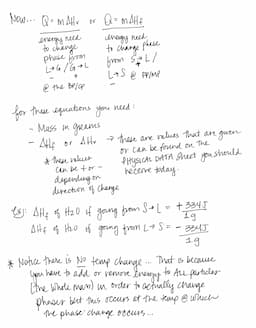 Now... Q = mΔHv or Q = mΔHf
energy need to change phase from L→G / G→L + - @ the BP/CP
energy need to change phase from S→L / L→S @ FP/MP + -
For these equations you need:
- Mass in grams
- ΔHf or ΔHv → these are values that are given or can be found on the PHYSICAL DATA sheet you should receive today.
* these values can be + or - depending on direction of change
Ex: ΔHf of H2O if going from S→L = + 334J / 1g
ΔHf of H2O if going from L→S = - 334J / 1g
* Notice there is NO temp change... That is because
you have to add or remove energy to ALL particles
(the whole mass) in order to actually change
phases but this occurs at the temp @ which
the phase change occurs...